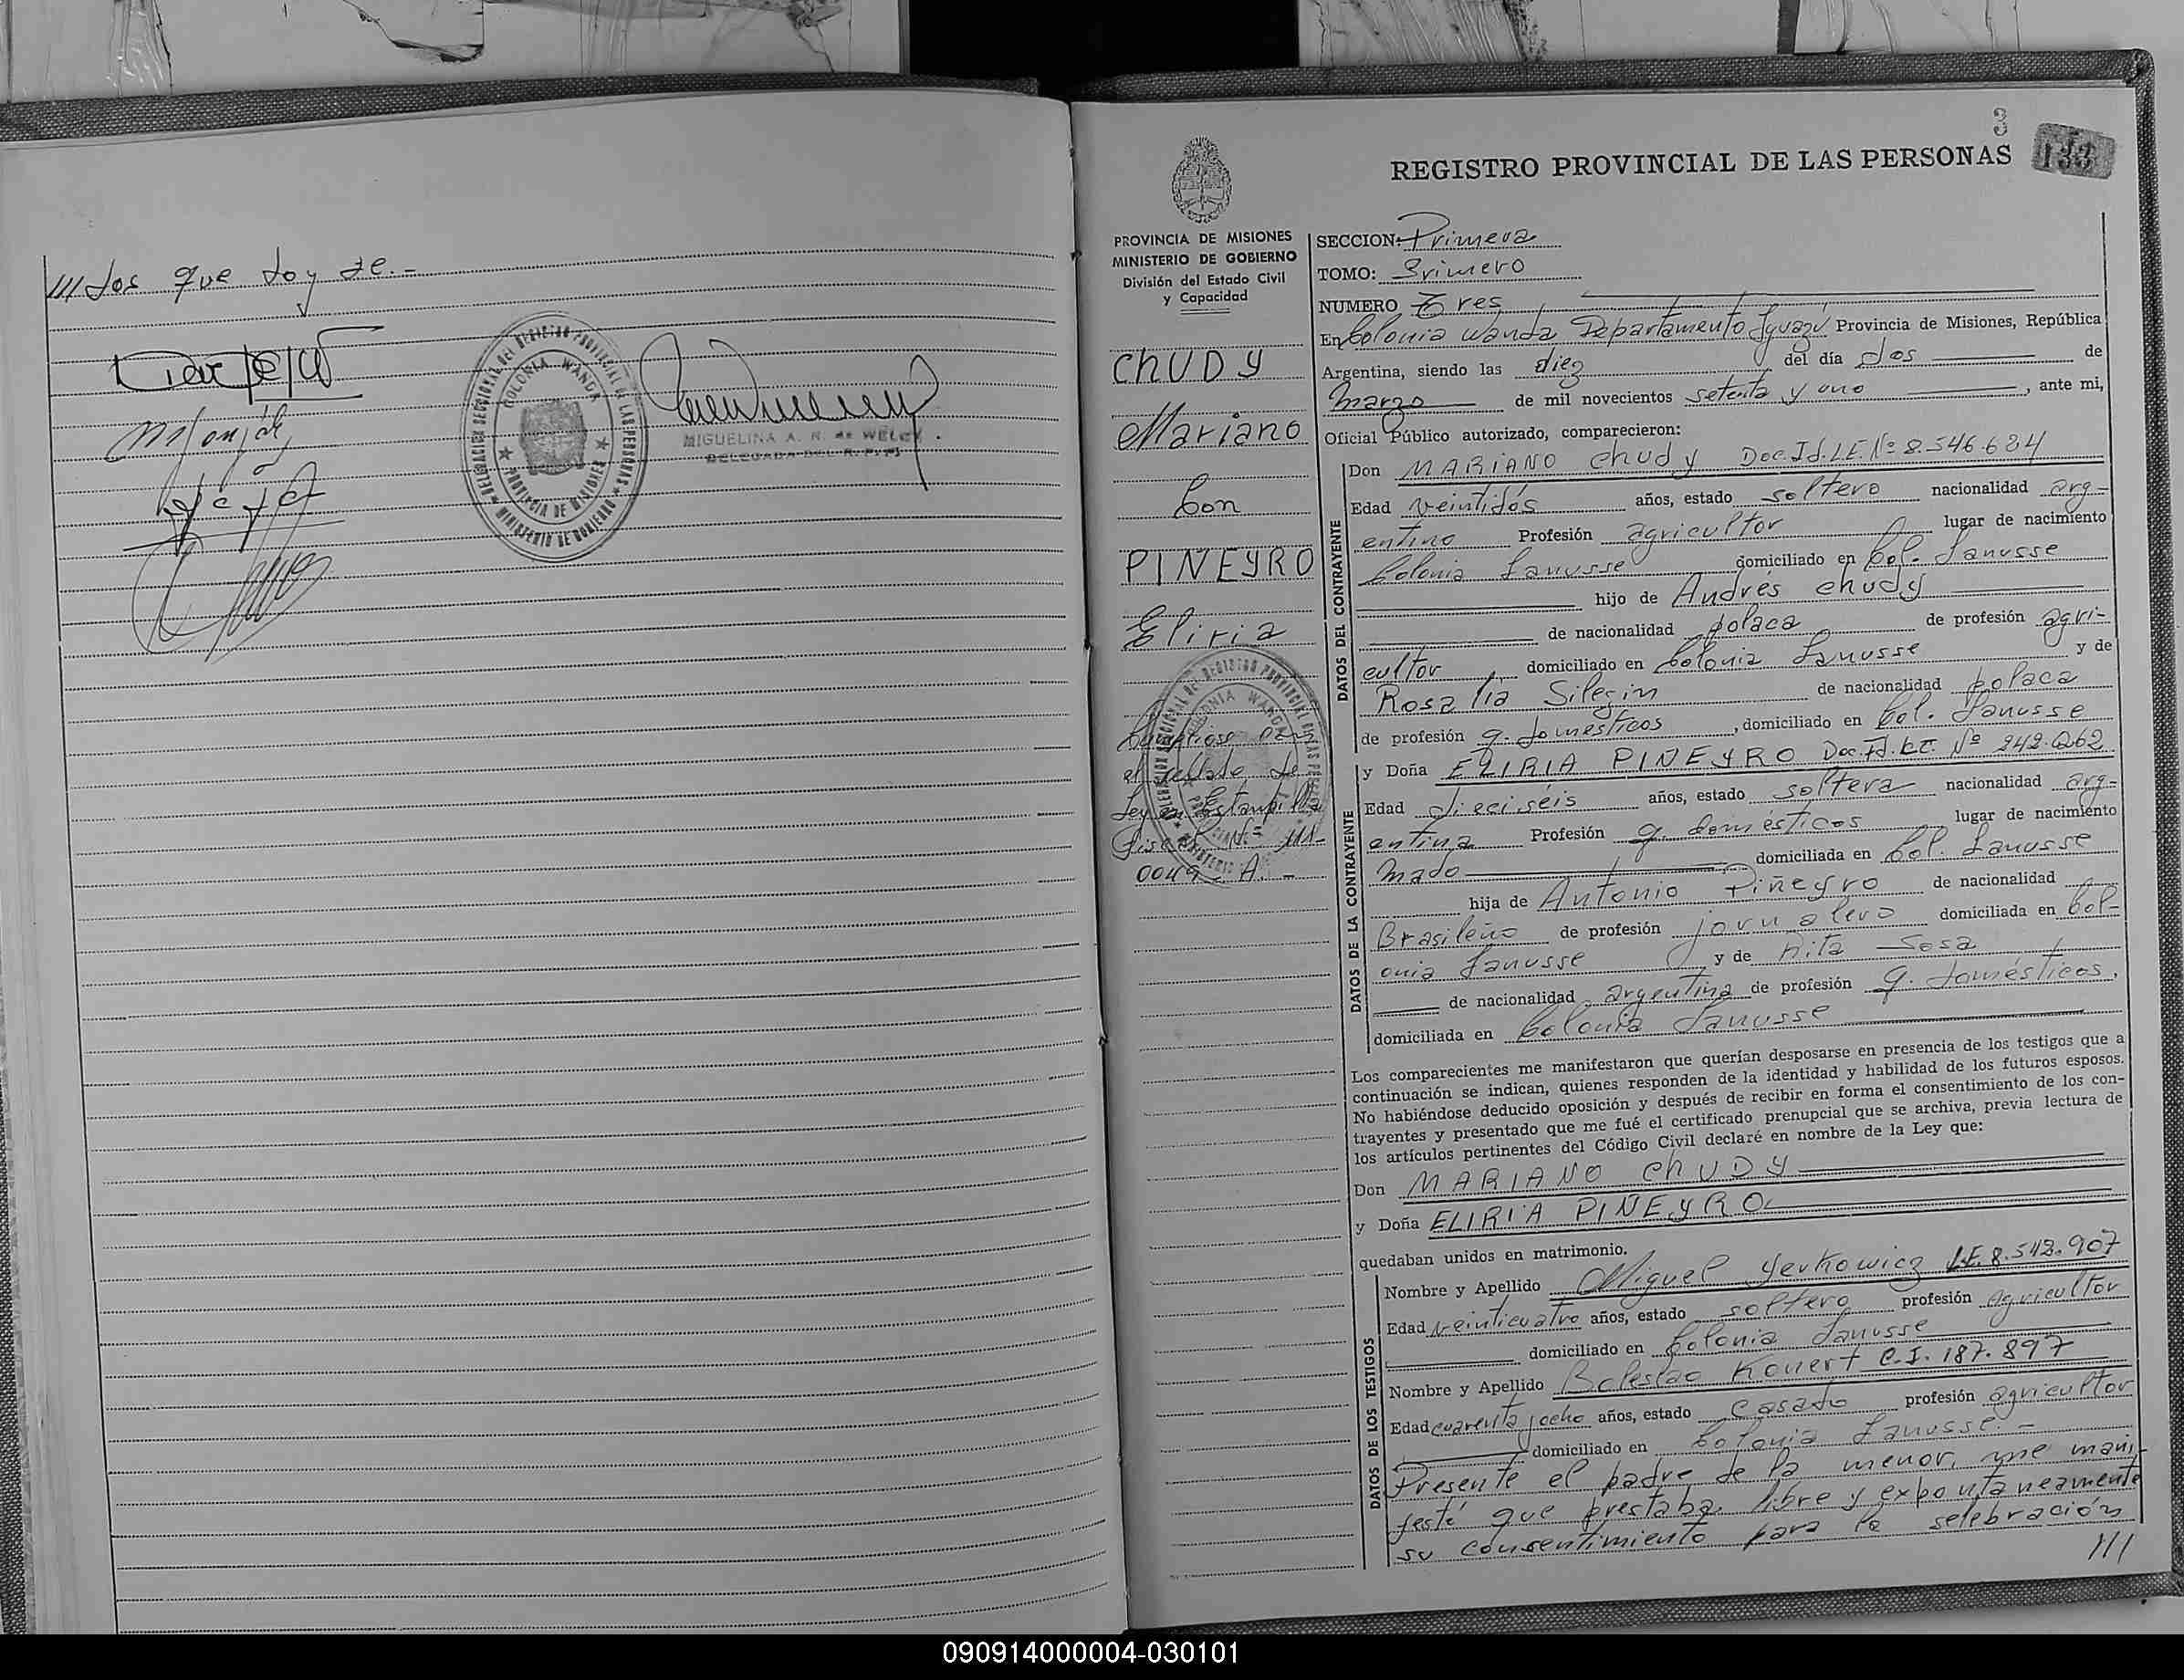 /// dos que doy fe.-
DELEGACION SECCIONAL DEL REGISTRO PROVINCIAL DE LAS PERSONAS
COLONIA WANDA
PROVINCIA DE MISIONES
MINISTERIO DE GOBIERNO
MIGUELINA A. N. de WELCY
DELEGADA DEL R.P.P.
3
133
REGISTRO PROVINCIAL DE LAS PERSONAS
PROVINCIA DE MISIONES
MINISTERIO DE GOBIERNO
División del Estado Civil
y Capacidad
ChUDY
Mariano
Con
PINEYRO
Eliria
el sellado de
Ley en Estampilla
Fiscal Nº 111-
0049 A. -
SECCION: Primera
TOMO: Primero
NUMERO Tres
En Colonia Wanda Departamento Iguazú Provincia de Misiones, República
Argentina, siendo las diez del día dos de
Marzo de mil novecientos setenta y uno, ante mi,
Oficial Público autorizado, comparecieron:
DATOS DEL CONTRAYENTE
Don MARIANO Chudy Doc.Id.L.E.Nº 8.546.684
Edad veintidós años, estado soltero nacionalidad arg-
entino Profesión agricultor lugar de nacimiento
Colonia Lanusse domiciliado en Col. Lanusse
hijo de Andrés Chudy
de nacionalidad polaca de profesión agri-
cultor domiciliado en Colonia Lanusse y de
Rosalía Silegin de nacionalidad polaca
de profesión q. domésticos, domiciliado en Col. Lanusse
DATOS DE LA CONTRAYENTE
y Doña ELIRIA PINEYRO Doc. Id. Nº 242.262
Edad dieciséis años, estado soltera nacionalidad arg-
entina Profesión q. domésticos lugar de nacimiento
Mado domiciliada en Col. Lanusse
hija de Antonio Piñeyro de nacionalidad
Brasileño de profesión jornalero domiciliada en Col-
onia Lanusse y de Rita Sosa
de nacionalidad argentina de profesión q. domésticos,
domiciliada en Colonia Lanusse
Los comparecientes me manifestaron que querían desposarse en presencia de los testigos que a
continuación se indican, quienes responden de la identidad y habilidad de los futuros esposos.
No habiéndose deducido oposición y después de recibir en forma el consentimiento de los con-
trayentes y presentado que me fué el certificado prenupcial que se archiva, previa lectura de
los artículos pertinentes del Código Civil declaré en nombre de la Ley que:
Don MARIANO ChUDY
y Doña ELIRIA PINEYRO
quedaban unidos en matrimonio.
DATOS DE LOS TESTIGOS
Nombre y Apellido Miguel Yerkowicz L.E. 8.542.907
Edad veinticuatro años, estado soltero profesión agricultor
domiciliado en Colonia Lanusse
Nombre y Apellido Boleslao Konert C.I. 187.897
Edad cuarenta y ocho años, estado casado profesión agricultor
domiciliado en Colonia Lanusse. -
Presente el padre de la menor, me mani-
festó que prestaba libre y expontaneamente
su consentimiento para la selebración
///
090914000004-030101